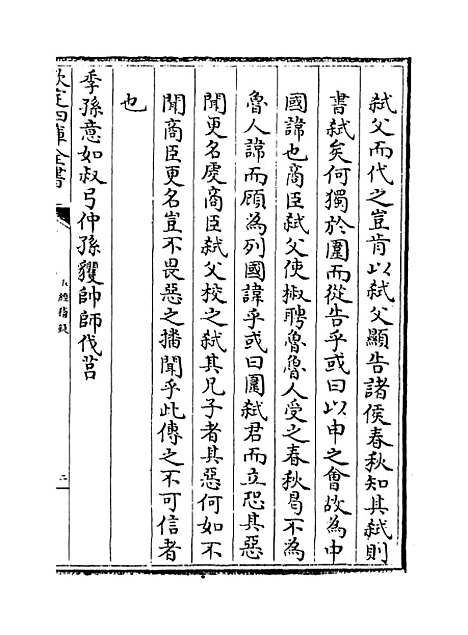 弑父而代之豈肯以弑父顯告諸侯春秋知其弑則
書弑矣何獨於圍而從告乎或曰以申之會故為中
國諱也商臣弑父使椒聘魯魯人受之春秋曷不為
魯人諱而顧為列國諱乎或曰圍弑君而立恐其惡
聞更名虔商臣弑父校之弑其兄子者其惡何如不
聞商臣更名豈不畏惡之播聞乎此傳之不可信者
也
季孫意如叔弓仲孫貜帥師伐莒
欽定四庫全書
五經蠡測
二